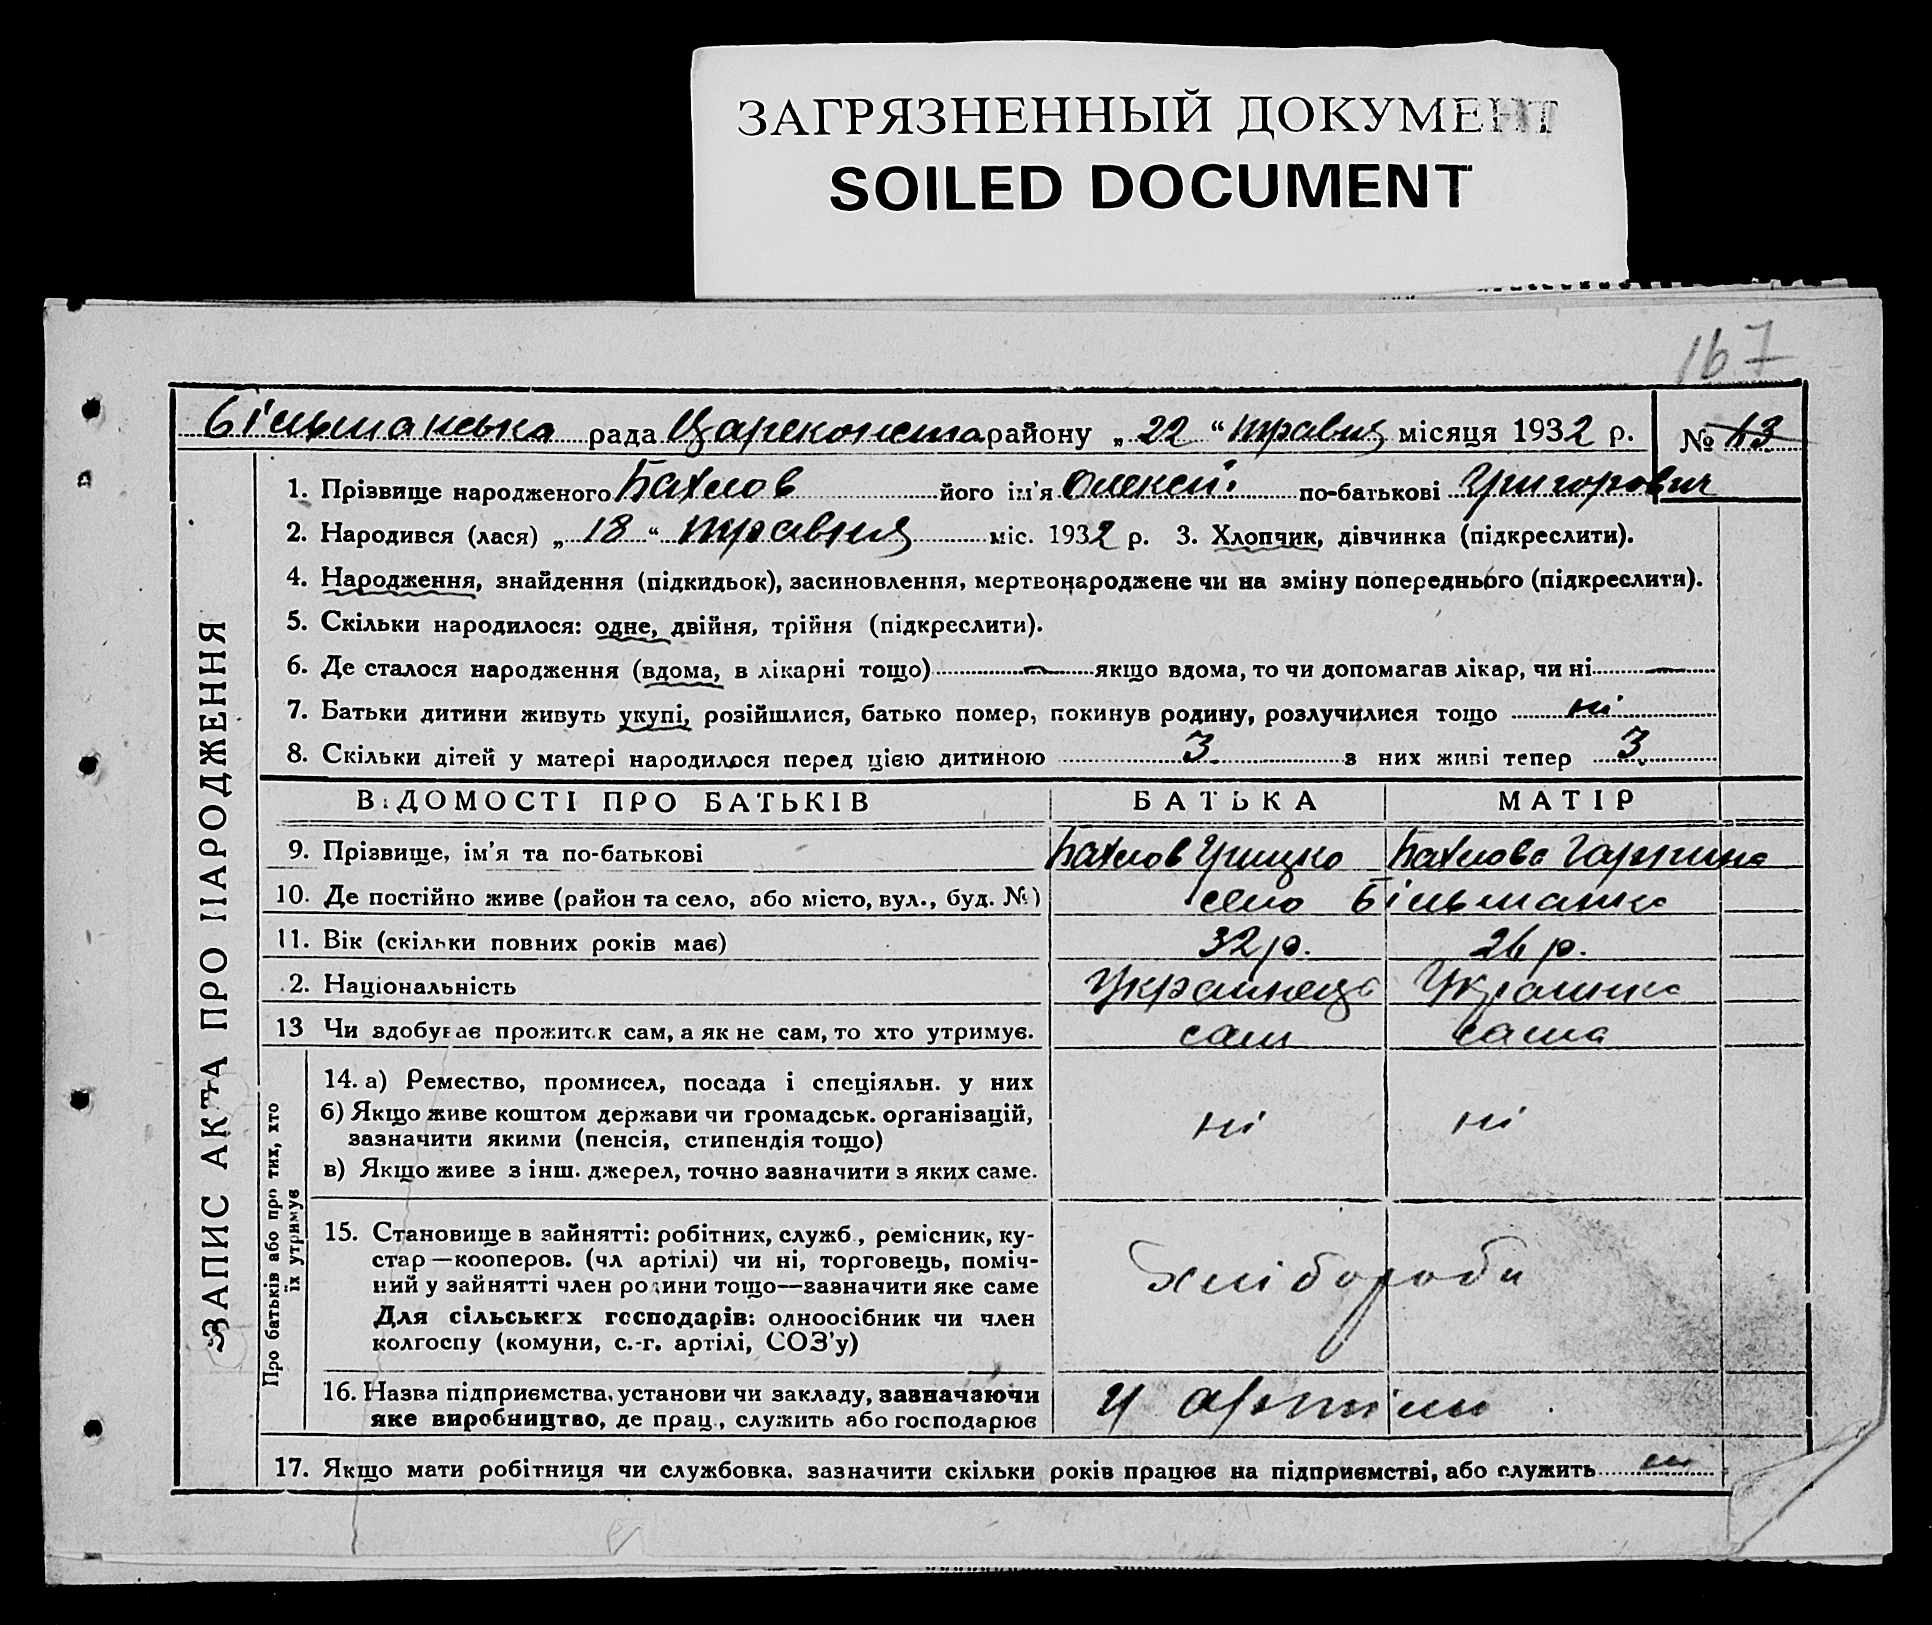 ЗАГРЯЗНЕННЫЙ ДОКУМЕНТ
SOILED DOCUMENT
167
Більманська рада Цареконста району „22“ травня місяця 1932 р. № 13
ЗАПИС АКТА ПРО НАРОДЖЕННЯ
1. Прізвище народженого Бахлов його ім'я Олексій по-батькові Григорович
2. Народився (лася) „18“ травня міс. 1932 р. 3. Хлопчик, дівчинка (підкреслити).
4. Народження, знайдення (підкидьок), засиновлення, мертвонароджене чи на зміну попереднього (підкреслити).
5. Скільки народилося: одне, двійня, трійня (підкреслити).
6. Де сталося народження (вдома, в лікарні тощо) — якщо вдома, то чи допомагав лікар, чи ні —
7. Батьки дитини живуть укупі, розійшлися, батько помер, покинув родину, розлучилися тощо ні
8. Скільки дітей у матері народилося перед цією дитиною 3 з них живі тепер 3
ВІДОМОСТІ ПРО БАТЬКІВ БАТЬКА МАТІР
9. Прізвище, ім'я та по-батькові Бахлов Грицко Бахлова Гарпина
10. Де постійно живе (район та село, або місто, вул., буд. №) село Більманка
11. Вік (скільки повних років має) 32 р. 26 р.
12. Національність Украинець Украинка
13 Чи здобуває прожиток сам, а як не сам, то хто утримує. сам сама
Про батьків або про тих, хто
їх утримує
14. а) Ремество, промисел, посада і спеціяльн. у них
б) Якщо живе коштом держави чи громадськ. організацій,
зазначити якими (пенсія, стипендія тощо) ні ні
в) Якщо живе з інш. джерел, точно зазначити з яких саме.
15. Становище в зайнятті: робітник, служб., ремісник, ку-
стар—кооперов. (чл артілі) чи ні, торговець, поміч-
ний у зайнятті член родини тощо—зазначити яке саме хлібороби
Для сільських господарів: одноосібник чи член
колгоспу (комуни, с.-г. артілі, СОЗ'у)
16. Назва підприємства, установи чи закладу, зазначаючи
яке виробництво, де прац., служить або господарює у артіли
17. Якщо мати робітниця чи службовка, зазначити скільки років працює на підприємстві, або служить